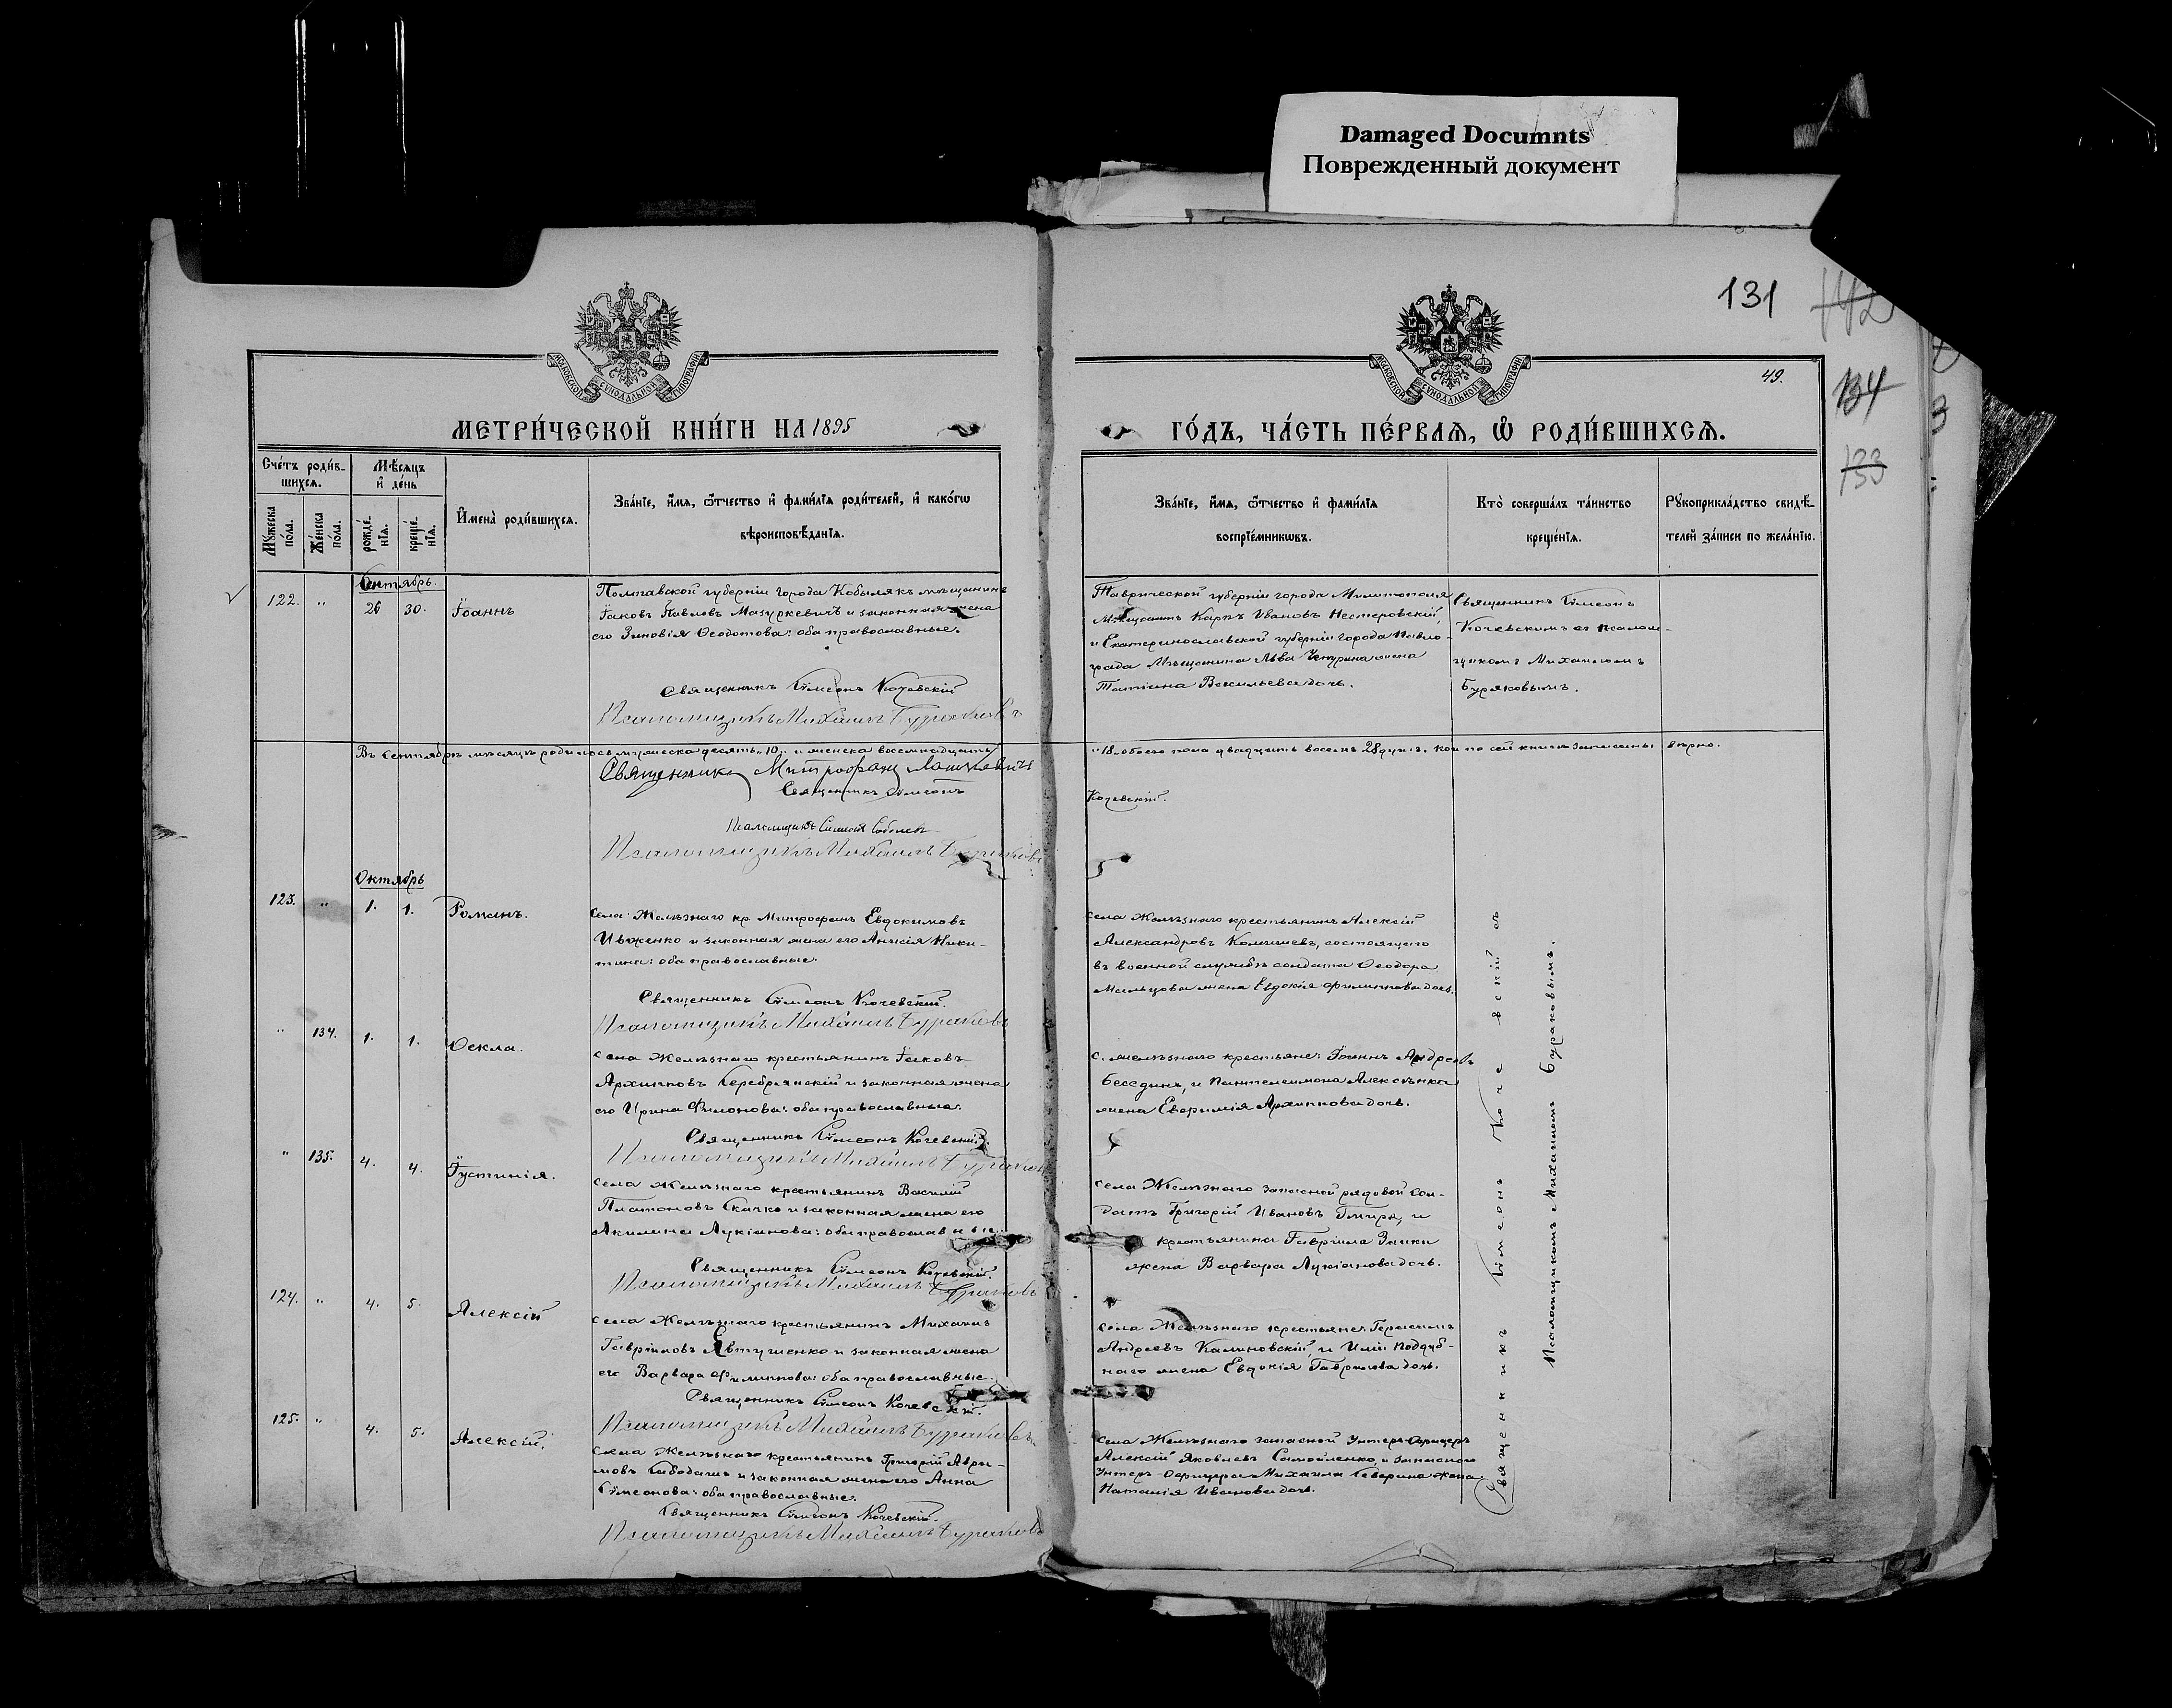 Damaged Documnts
Поврежденный документ
131
142
49.
134
133
МОСКОВСКОЙ СѴНОДАЛЬНОЙ ТИПОГРАФІИ
МОСКОВСКОЙ СѴНОДАЛЬНОЙ ТИПОГРАФІИ
МЕТРИ́ЧЕСКОЙ КНИ́ГИ НА 1895
ГО́ДЪ, ЧА́СТЬ ПЕ́РВАѦ, Ѽ РОДИ́ВШИХСѦ.
Сче́тъ роди́в-
шихсѧ.
Мѣ́сѧцъ
и҆ де́нь
Мꙋ́жеска
по́ла.
Же́нска
по́ла.
рожде́-
нїѧ.
креще́-
нїѧ.
И҆мена̀ роди́вшихсѧ.
Зва́нїе, и҆́мѧ, ѻ҆́тчество и҆ фами́лїѧ роди́телей, и҆ како́гѡ
вѣроисповѣ́данїѧ.
Зва́нїе, и҆́мѧ, ѻ҆́тчество и҆ фами́лїѧ
воспрїе́мникѡвъ.
Кто̀ соверша́лъ та́инство
креще́нїѧ.
Рꙋкоприкла́дство свидѣ́-
телей за́писи по жела́нїю.
Сентябрь.
122. " 26 30. Іоаннъ
Полтавской губерніи города Кобылякъ мѣщанинъ
Іаковъ Павловъ Мазуркевичъ и законная жена
его Зиновія Ѳеодотова: оба православные.
Священникъ Сѵмеонъ Кочевскій
Псаломщикъ Михаилъ Бураковъ
Таврической губерніи города Милитополя
Мѣщанинъ Карпъ Ивановъ Нестеровскій,
и Екатеринославской губерніи города Павло-
града Мѣщанина Льва Чепурина жена
Татіана Васильева дочь.
Священникъ Сѵмеонъ
Кочевскимъ съ псалом-
щикомъ Михаиломъ
Бураковымъ.
Въ Сентябрѣ мѣсяцѣ родилось мужеска десять "10" и женска восемнадцать
"18" обоего пола двадцать восемь 28 душъ, кои по сей книгѣ записаны вѣрно.
Священникъ Митрофанъ
Священникъ Сѵмеонъ
Кочевскій.
Псаломщикъ
Псаломщикъ Михаилъ Бураковъ
Октябрь
123. " 1. 1. Романъ.
Села Желѣзнаго кр. Митрофанъ Евдокимовъ
Ивженко и законная жена его Анисія Ники-
тина: оба православные.
Священникъ Сѵмеонъ Кочевскій.
Псаломщикъ Михаилъ Бураковъ
Села Желѣзнаго крестьянинъ Алексій
Александровъ состоящаго
въ военной службѣ солдата Ѳеодора
Мальцова жена Евдокія Филиппова дочь.
" 134. 1. 1. Ѳекла.
Села Желѣзнаго крестьянинъ Іаковъ
Архиповъ Серебрянскій и законная жена
его Ирина Филонова: оба православные.
Священникъ Сѵмеонъ Кочевскій.
Псаломщикъ Михаилъ Бураковъ
с. Желѣзнаго крестьяне: Іоаннъ Андреевъ
Бесединъ, и Пантелеимона Алексѣнка
жена Евфимія Архиппова дочь.
" 135. 4. 4. Іустинія.
Села Желѣзнаго крестьянинъ Василій
Платоновъ Скачко и законная жена его
Акилина Лукіанова: оба православные.
Священникъ Сѵмеонъ Кочевскій.
Псаломщикъ Михаилъ Бураковъ
Села Желѣзнаго запасной рядовой сол-
датъ Григорій Ивановъ Гмиря, и
крестьянина Гавріила Заики
жена Варвара Лукіанова дочь.
124. " 4. 5. Алексій
Села Желѣзнаго крестьянинъ Михаилъ
Гавріиловъ Евтушенко и законная жена
его Варвара Филиппова: оба православные.
Священникъ Сѵмеонъ Кочевскій.
Псаломщикъ Михаилъ Бураковъ
Села Желѣзнаго крестьяне: Герасимъ
Андреевъ Калиновскій, и Иліи Поддуб-
наго жена Евдокія Гавріилова дочь.
125. " 4. 5. Алексій.
Села Желѣзнаго крестьянинъ Григорій Ефи-
мовъ и законная жена его Анна
Сѵмеонова: оба православные.
Священникъ Сѵмеонъ Кочевскій.
Псаломщикъ Михаилъ Бураковъ
Села Желѣзнаго запасной Унтеръ-Офицеръ
Алексій Яковлевъ Самойленко, и запаснаго
Унтеръ-Офицера Михаила Северина жена
Наталія Иванова дочь.
Священникъ Сѵмеонъ Кочевскій съ
Псаломщикомъ Михаиломъ Бураковымъ.